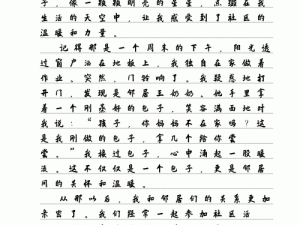 点缀在我
生活的天空中，让我感受到了社区的
温暖和力量。
记得那是一个周末的下午，阳光透
过窗户洒在地板上，我独自在家做着
作业。突然，门铃响了。我疑惑地打
开门，发现是邻居王奶奶。她手里拿
着一个刚蒸好的包子，笑容满面地对
我说：“孩子，你妈妈不在家吗？这
是我刚做的包子，拿几个给你尝
尝。”我接过包子，心中涌起一股暖
流。这不仅仅是一个包子，更是邻居
间的关怀和温暖。
从那以后，我和邻居们的关系更加
亲密了。我们经常一起参加社区活